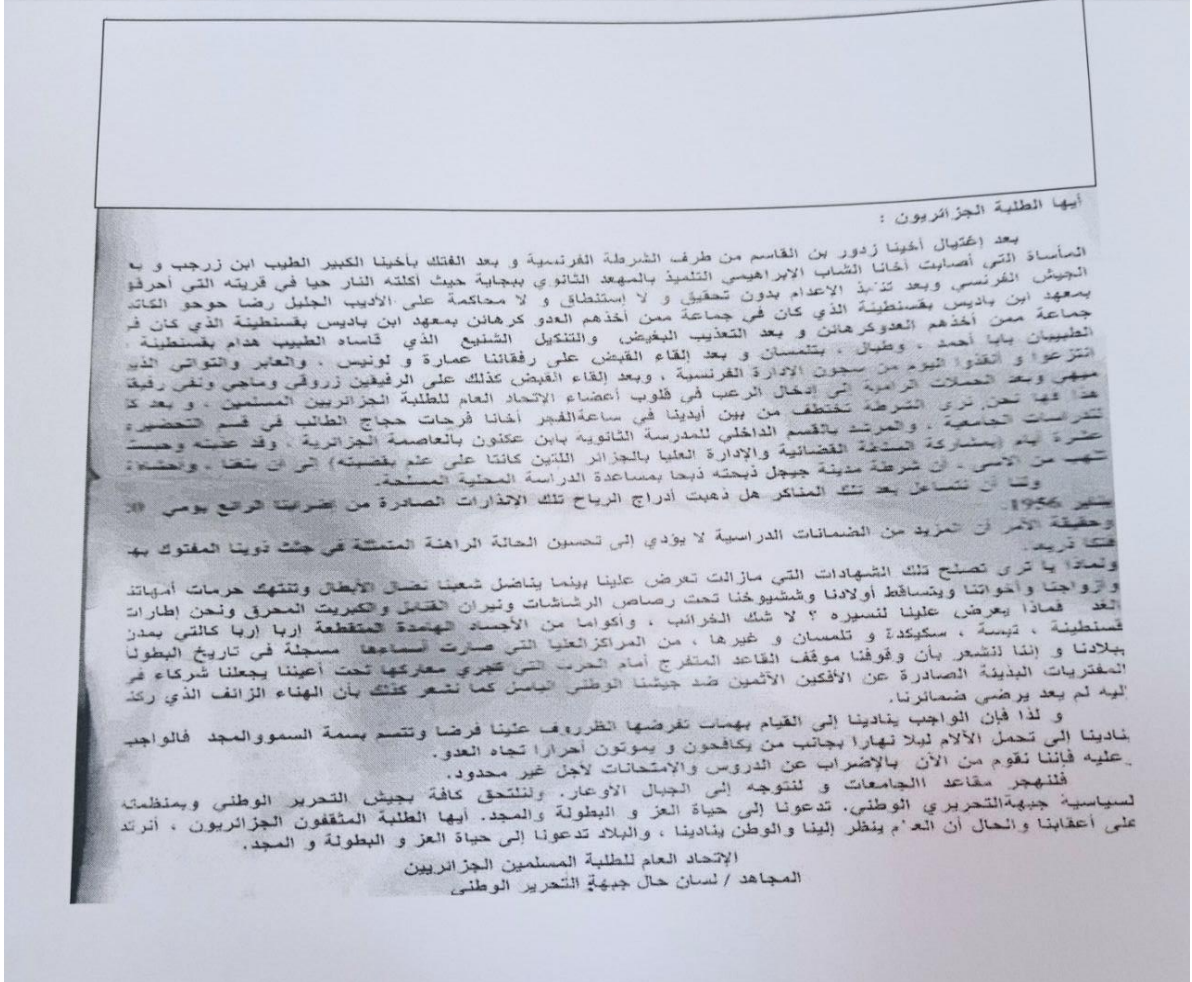 أيها الطلبة الجزائريون :
بعد إغتيال أخينا زدور بن القاسم من طرف الشرطة الفرنسية و بعد الفتك بأخينا الكبير الطيب ابن زرجب و بع
المأساة التي أصابت أخانا الشاب الإبراهيمي التلميذ بالمهعد الثانوي ببجاية حيث أكلته النار حيا في قريته التي أحرقو
الجيش الفرنسي وبعد الاعدام بدون تحقيق و لا إستنطاق و لا محاكمة على الأديب الجليل رضا حوحو الكاتب
بمعهد ابن باديس بقسنطينة الذي كان في جماعة ممن أخذهم العدو كرهائن بمعهد ابن باديس بقسنطينة الذي كان في
جماعة ممن أخذهم العدوكرهائن و بعد التعذيب البغيض والتنكيل الشنيع الذي قاساه الطبيب هدام بقسنطينة ،
الطبيبان بابا أحمد ، وطبال ، بتلمسان و بعد إلقاء القبض على رفقائنا عمارة و لونيس ، والعابر والتواتي الذين
انتزعوا و أنقذوا اليوم من سجون الإدارة الفرنسية ، وبعد إلقاء القبض كذلك على الرفيقين زروقي وماجي ونفى رفيقنا
ميهي وبعد الحملات الرامية إلى إدخال الرعب في قلوب أعضاء الإتحاد العام للطلبة الجزائريين المسلمين ، و بعد كل
هذا فها نحن نرى الشرطة تختطف من بين أيدينا في ساعةالفجر أخانا فرحات حجاج الطالب في قسم التحضيرية
للدراسات الجامعية ، والمرشد بالقسم الداخلي للمدرسة الثانوية بابن عكنون بالعاصمة الجزائرية ، وقد عذبته وحبسته
عشرة أيام (بمشاركة السلطة القضائية والإدارة العليا بالجزائر اللتين كانتا على علم بقضيته) الى أن بلغنا ، وأحشاؤنا
تلتهب من الأسى ، أن شرطة مدينة جيجل ذبحته ذبحا بمساعدة الدراسة المحلية المسلحة.
ولنا أن نتساءل بعد تلك المناكر هل ذهبت أدراج الرياح تلك الإنذارات الصادرة من إضرابنا الرائع يومي 20
يناير 1956.
وحقيقة الأمر أن المزيد من الضمانات الدراسية لا يؤدي إلى تحسين الحالة الراهنة المتمثلة في جثث ذوينا المفتوك بهم
فتكا ذريعا.
ولماذا يا ترى تصلح تلك الشهادات التي مازالت تعرض علينا بينما يناضل شعبنا نضال الأبطال وتنتهك حرمات أمهاتنا
وأزواجنا وأخواتنا ويتساقط أولادنا وششيوخنا تحت رصاص الرشاشات ونيران القنابل والكبريت المحرق ونحن إطارات
الغد فماذا يعرض علينا لنسيره ؟ لا شك الخرائب ، وأكواما من الأجساد الهامدة المتقطعة إربا إربا كالتي بمدن
قسنطينة ، تبسة ، سكيكدة و تلمسان و غيرها ، من المراكزالعليا التي صارت أسماءها مسجلة في تاريخ البطولة
ببلادنا و إننا لنشعر بأن وقوفنا موقف القاعد المتفرج أمام الحرب التي تجري معاركها تحت أعيننا يجعلنا شركاء في
المفتريات البذيئة الصادرة عن الأفكين الآثمين ضد جيشنا الوطني الباسل كما نشعر كذلك بأن الهناء الزائف الذي ركنا
إليه لم يعد يرضي ضمائرنا.
و لذا فإن الواجب ينادينا إلى القيام بهمات تفرضها الظرروف علينا فرضا وتتسم بسمة السمووالمجد فالواجب
ينادينا إلى تحمل الألام ليلا نهارا بجانب من يكافحون و يموتون أحرارا تجاه العدو.
عليه فإننا نقوم من الآن بالإضراب عن الدروس والإمتحانات لأجل غير محدود.
فلنهجر مقاعد االجامعات و لنتوجه إلى الجبال الأوعار. ولنلتحق كافة بجيش التحرير الوطني وبمنظمته
لسياسية جبهةالتحريري الوطني. تدعونا إلى حياة العز و البطولة والمجد. أيها الطلبة المثقفون الجزائريون ، أنرتد
على أعقابنا والحال أن ينظر إلينا والوطن ينادينا ، والبلاد تدعونا إلى حياة العز و البطولة و المجد.
الإتحاد العام للطلبة المسلمين الجزائريين
المجاهد / لسان حال جبهة التحرير الوطني